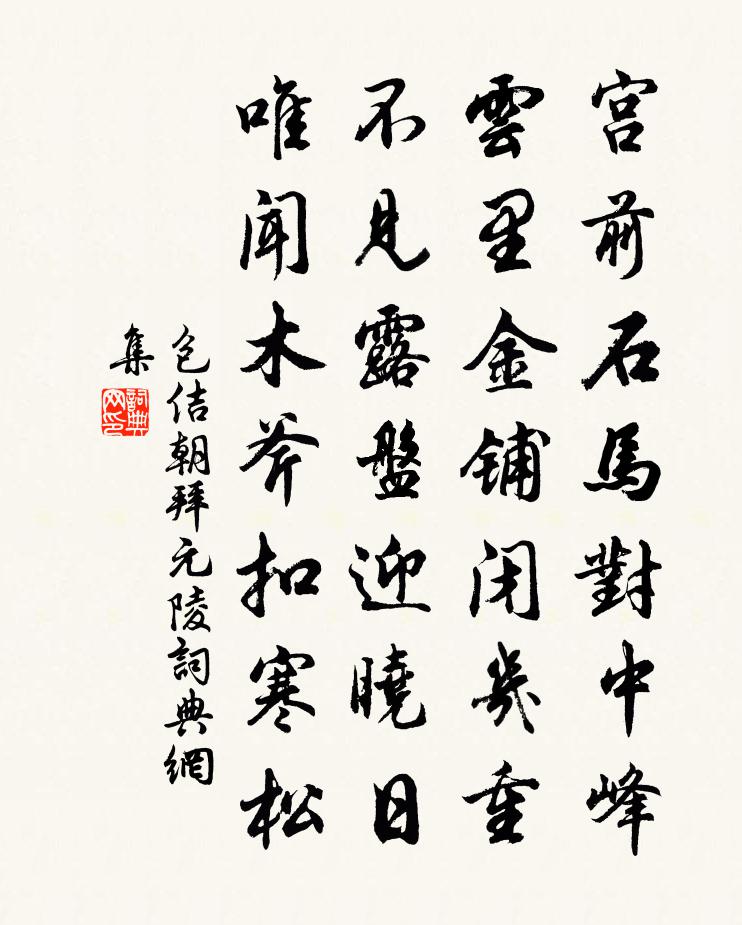 宫前石馬對中峰
雲里金铺闭幾重
不見露盤迎曉日
唯闻木斧扣寒松
包佶朝拜元陵詞典網
集
詞典
网印